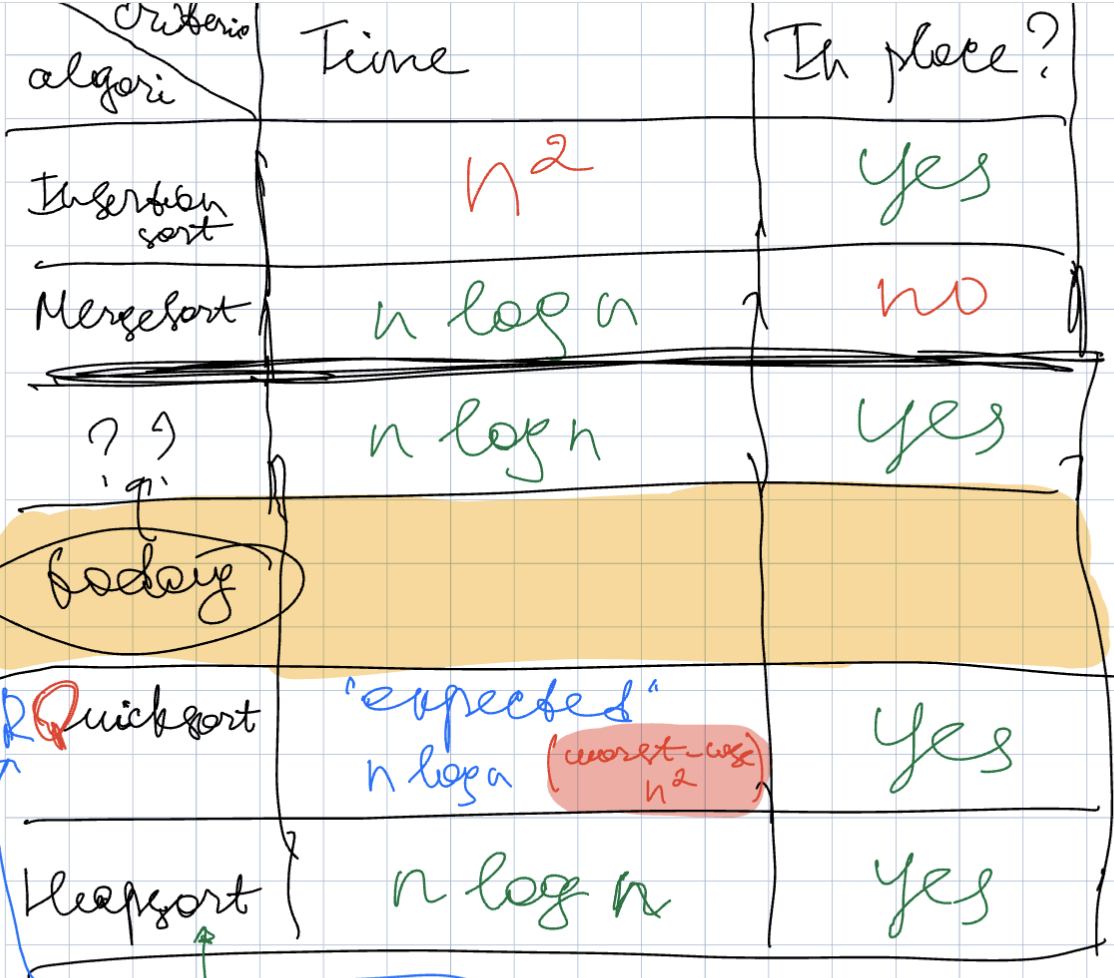 criteria
algori
Time
In place?
Insertion
sort
n²
yes
MergeSort
n log n
no
? ?
n log n
yes
today
RQuicksort
"expected"
n log n
(worst-case
n²)
yes
Heapsort
n log n
yes